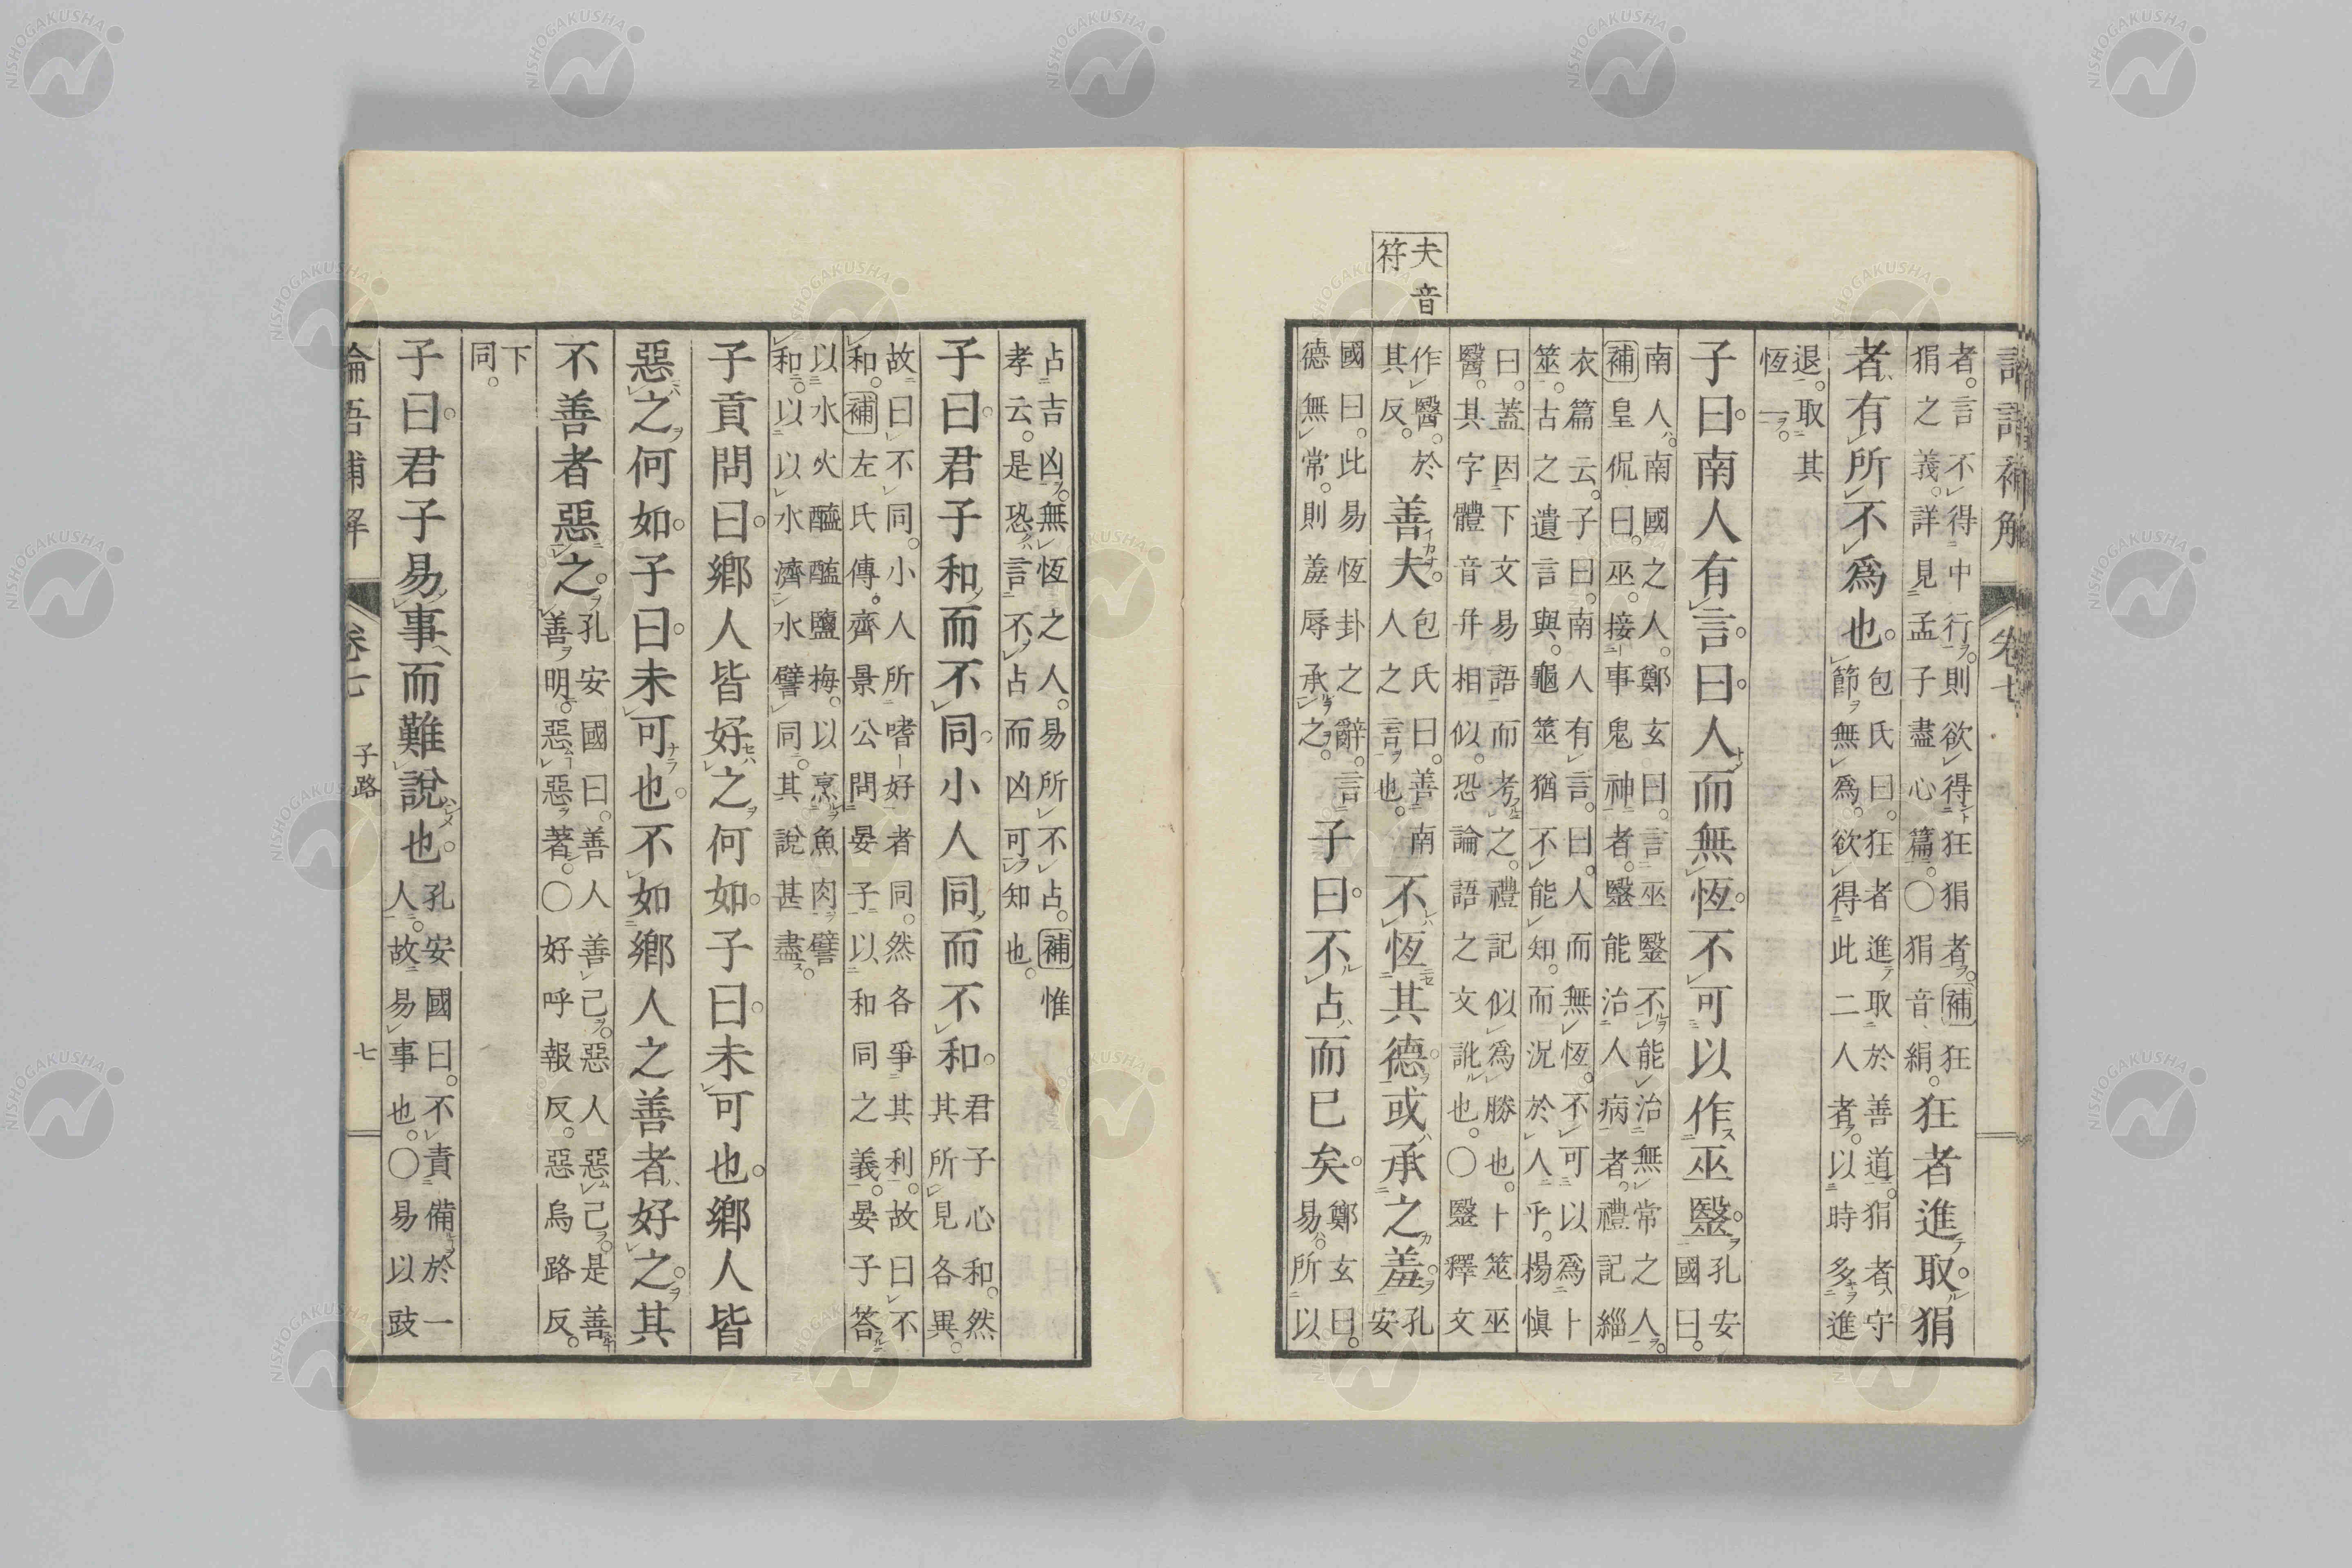 論語補解　卷七
者。言不得中行。則欲得狂狷者。補狂
狷之義。詳見孟子盡心篇。〇狷音絹。
狂者進取。狷
者有所不爲也。
包氏曰。狂者進取於善道。狷者守
節無爲。欲得此二人者。以時多進
退。取其
恆一。
子曰。南人有言。曰。人而無恆。不可以作巫毉。
孔安
國曰。
南人。南國之人。鄭玄曰。言巫毉不能治無常之人。
補皇侃曰。巫。接事鬼神者。毉能治人病者。禮記緇
衣篇云。子曰。南人有言。曰。人而無恆。不可以爲卜
筮。古之遺言與。龜筮猶不能知。而況於人乎。楊愼
曰。蓋因下文易語而考之。禮記似爲勝也。卜筮巫
醫。其字體音幷相似。恐論語之文訛也。〇毉釋文
夫音
符
作醫。於
其反。
善夫。
包氏曰。善南
人之言也。
不恆其德。或承之羞。
孔
安
國曰。此易恆卦之辭。言
德無常。則羞辱承之。
子曰。不占而已矣。
鄭玄曰。
易所以
占吉凶。無恆之人。易所不占。補惟
孝云。是恐言不占而凶可知也。
子曰。君子和而不同。小人同而不和。
君子心和。然
其所見各異。
故曰不同。小人所嗜好者同。然各爭其利。故曰不
和。補左氏傳。齊景公問晏子以和同之義。晏子答
以水火醯醢鹽梅。以烹魚肉譬
和。以以水濟水譬同。其說甚盡。
子貢問曰。鄉人皆好之何如。子曰。未可也。鄉人皆
惡之何如。子曰。未可也。不如鄉人之善者好之。其
不善者惡之。
孔安國曰。善人善己。惡人惡己。是善
善明。惡惡著。〇好呼報反。惡烏路反。
下
同。
子曰。君子易事而難說也。
孔安國曰。不責備於一
人。故易事也。〇易以豉
論語補解　卷七　子路　七